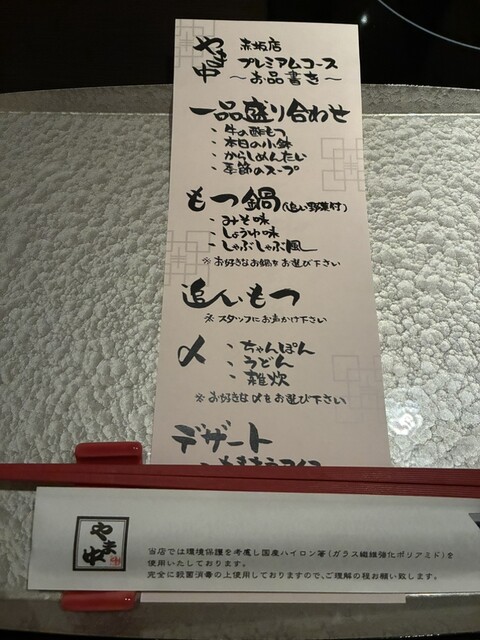 やま中
赤坂店
プレミアムコース
～お品書き～
一品盛り合わせ
・牛の酢もつ
・本日の小鉢
・からしめんたい
・季節のスープ
もつ鍋(追い野菜付)
・みそ味
・しょうゆ味
・しゃぶしゃぶ風
※お好きなお鍋をお選び下さい
追いもつ
※スタッフにお声かけ下さい
〆
・ちゃんぽん
・うどん
・雑炊
※お好きな〆をお選び下さい
デザート
やま中
当店では環境保護を考慮し国産ハイロン箸(ガラス繊維強化ポリアミド)を
使用いたしております。
完全に殺菌消毒の上使用しておりますので、ご理解の程お願い致します。